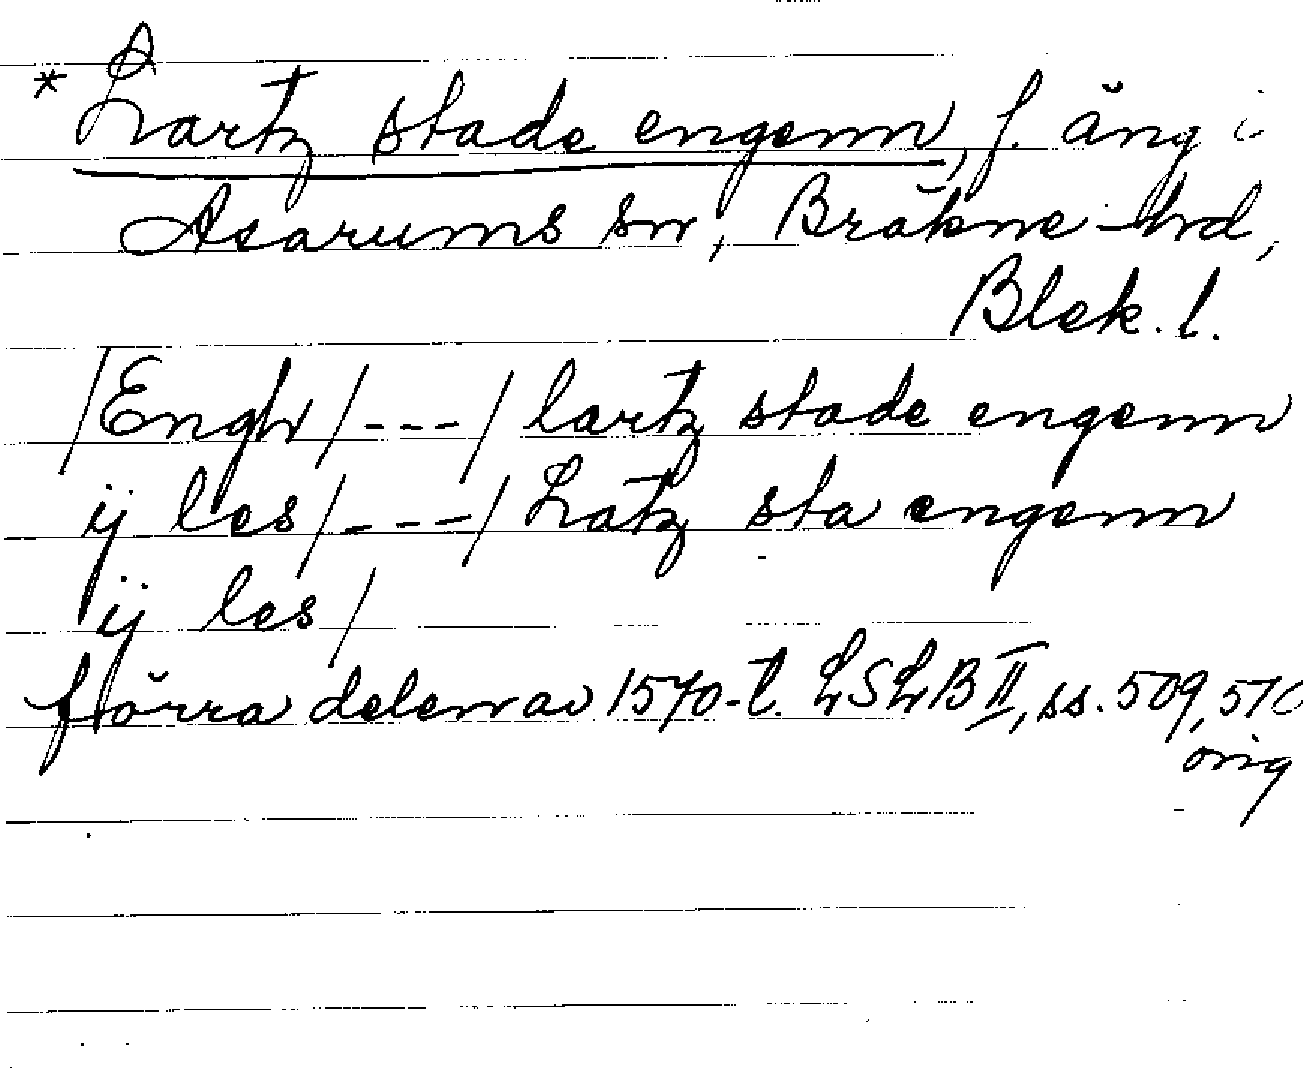 * Lartz stade engenn, f. äng i
Asarums sn, Bräkne-hd,
Blek. l.
/Engh/---/ lartz stade engenn
ij les/---/ Latz sta engenn
ij les/
förra delen av 1570-t. LSLB II, ss. 509, 510
orig